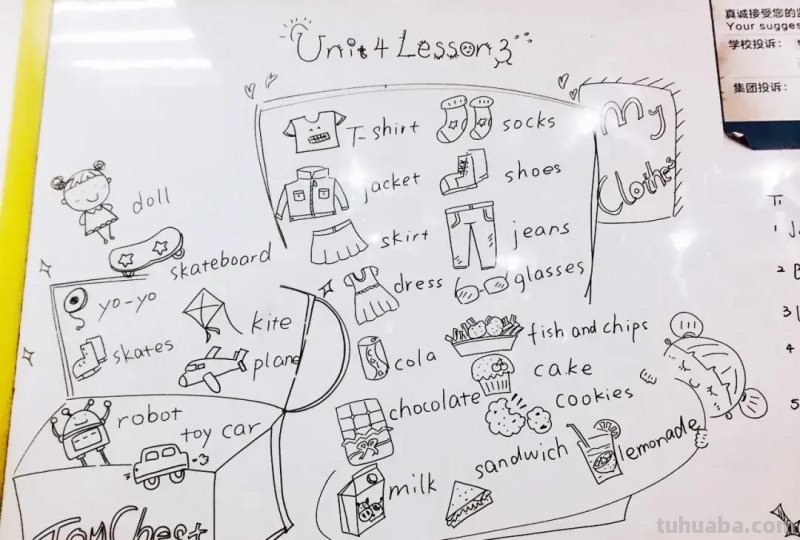 Unit 4 Lesson 3
My
Clothes
T-shirt
socks
jacket
shoes
skirt
jeans
dress
glasses
doll
skateboard
yo-yo
kite
skates
plane
robot
toy car
Toy Chest
cola
fish and chips
cake
chocolate
cookies
sandwich
lemonade
milk
真诚接受您的
Your sugges
学校投诉：
集团投诉：
1
2
3
4
5
tuhuaba.com